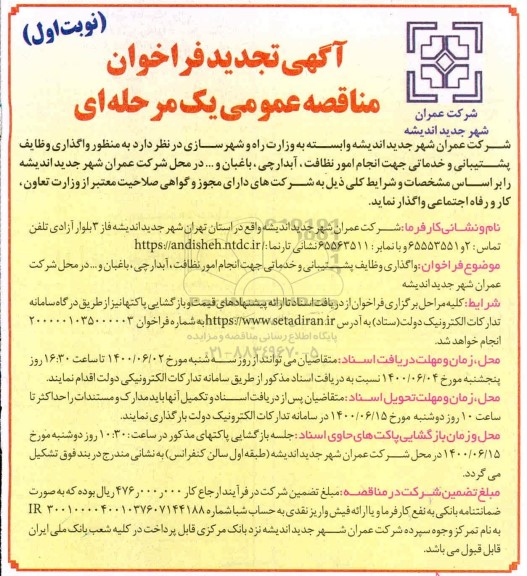 (نوبت اول)
آگهی تجدید فراخوان
مناقصه عمومی یک مرحله ای
شرکت عمران
شهر جدید اندیشه
شرکت عمران شهر جدید اندیشه وابسته به وزارت راه و شهرسازی در نظر دارد به منظور واگذاری وظایف
پشتیبانی و خدماتی جهت انجام امور نظافت ، آبدارچی ، باغبان و ... در محل شرکت عمران شهر جدید اندیشه
را بر اساس مشخصات و شرایط کلی ذیل به شرکت های دارای مجوز و گواهی صلاحیت معتبر از وزارت تعاون ،
کار و رفاه اجتماعی واگذار نماید.
نام و نشانی کارفرما: شرکت عمران شهر جدید اندیشه واقع در استان تهران شهر جدید اندیشه فاز ۳ بلوار آزادی تلفن
تماس : ۲و۶۵۵۵۳۵۵۱ و با نمابر : ۶۵۵۶۳۵۱۱ نشانی تارنما: https://andisheh.ntdc.ir/
موضوع فراخوان: واگذاری وظایف پشتیبانی و خدماتی جهت انجام امور نظافت ، آبدارچی ، باغبان و ... در محل شرکت
عمران شهر جدید اندیشه
شرایط: کلیه مراحل برگزاری فراخوان از دریافت اسناد تا ارائه پیشنهادهای قیمت و بازگشایی پاکتها نیز از طریق درگاه سامانه
تدارکات الکترونیک دولت(ستاد) به آدرس https://www.setadiran.ir به شماره فراخوان ۲۰۰۰۰۰۱۰۳۵۰۰۰۰۰۳
انجام خواهد شد.
پایگاه اطلاع رسانی مناقصه و مزایده
۰۲۱-۸۸۳۴۹۶۷۰-۵
محل، زمان و مهلت دریافت اسناد: متقاضیان می توانند از روز سه شنبه مورخ ۱۴۰۰/۰۶/۰۲ تا ساعت ۱۶:۳۰ روز
پنجشنبه مورخ ۱۴۰۰/۰۶/۰۴ نسبت به دریافت اسناد مذکور از طریق سامانه تدارکات الکترونیکی دولت اقدام نمایند.
محل، زمان و مهلت تحویل اسناد: متقاضیان پس از دریافت اسناد و تکمیل آنها باید مدارک و مستندات را حداکثر تا
ساعت ۱۰ روز دوشنبه مورخ ۱۴۰۰/۰۶/۱۵ در سامانه تدارکات الکترونیک دولت بارگذاری نمایند.
محل و زمان بازگشایی پاکت های حاوی اسناد : جلسه بازگشایی پاکتهای مذکور در ساعت: ۱۰:۳۰ روز دوشنبه مورخ
۱۴۰۰/۰۶/۱۵ در محل شرکت عمران شهر جدید اندیشه (طبقه اول سالن کنفرانس) به نشانی مندرج در بند فوق تشکیل
می گردد.
مبلغ تضمین شرکت در مناقصه: مبلغ تضمین شرکت در فرآیند ارجاع کار ۴۷۶ر۰۰۰ر۰۰۰ ریال بوده که به صورت
ضمانتنامه بانکی به نفع کارفرما و یا ارائه فیش واریز نقدی به حساب شبا شماره IR ۳۰۰۱۰۰۰۰۴۰۰۱۰۳۷۶۰۷۱۴۴۱۸۸
به نام تمرکز وجوه سپرده شرکت عمران شهر جدید اندیشه نزد بانک مرکزی قابل پرداخت در کلیه شعب بانک ملی ایران
قابل قبول می باشد.